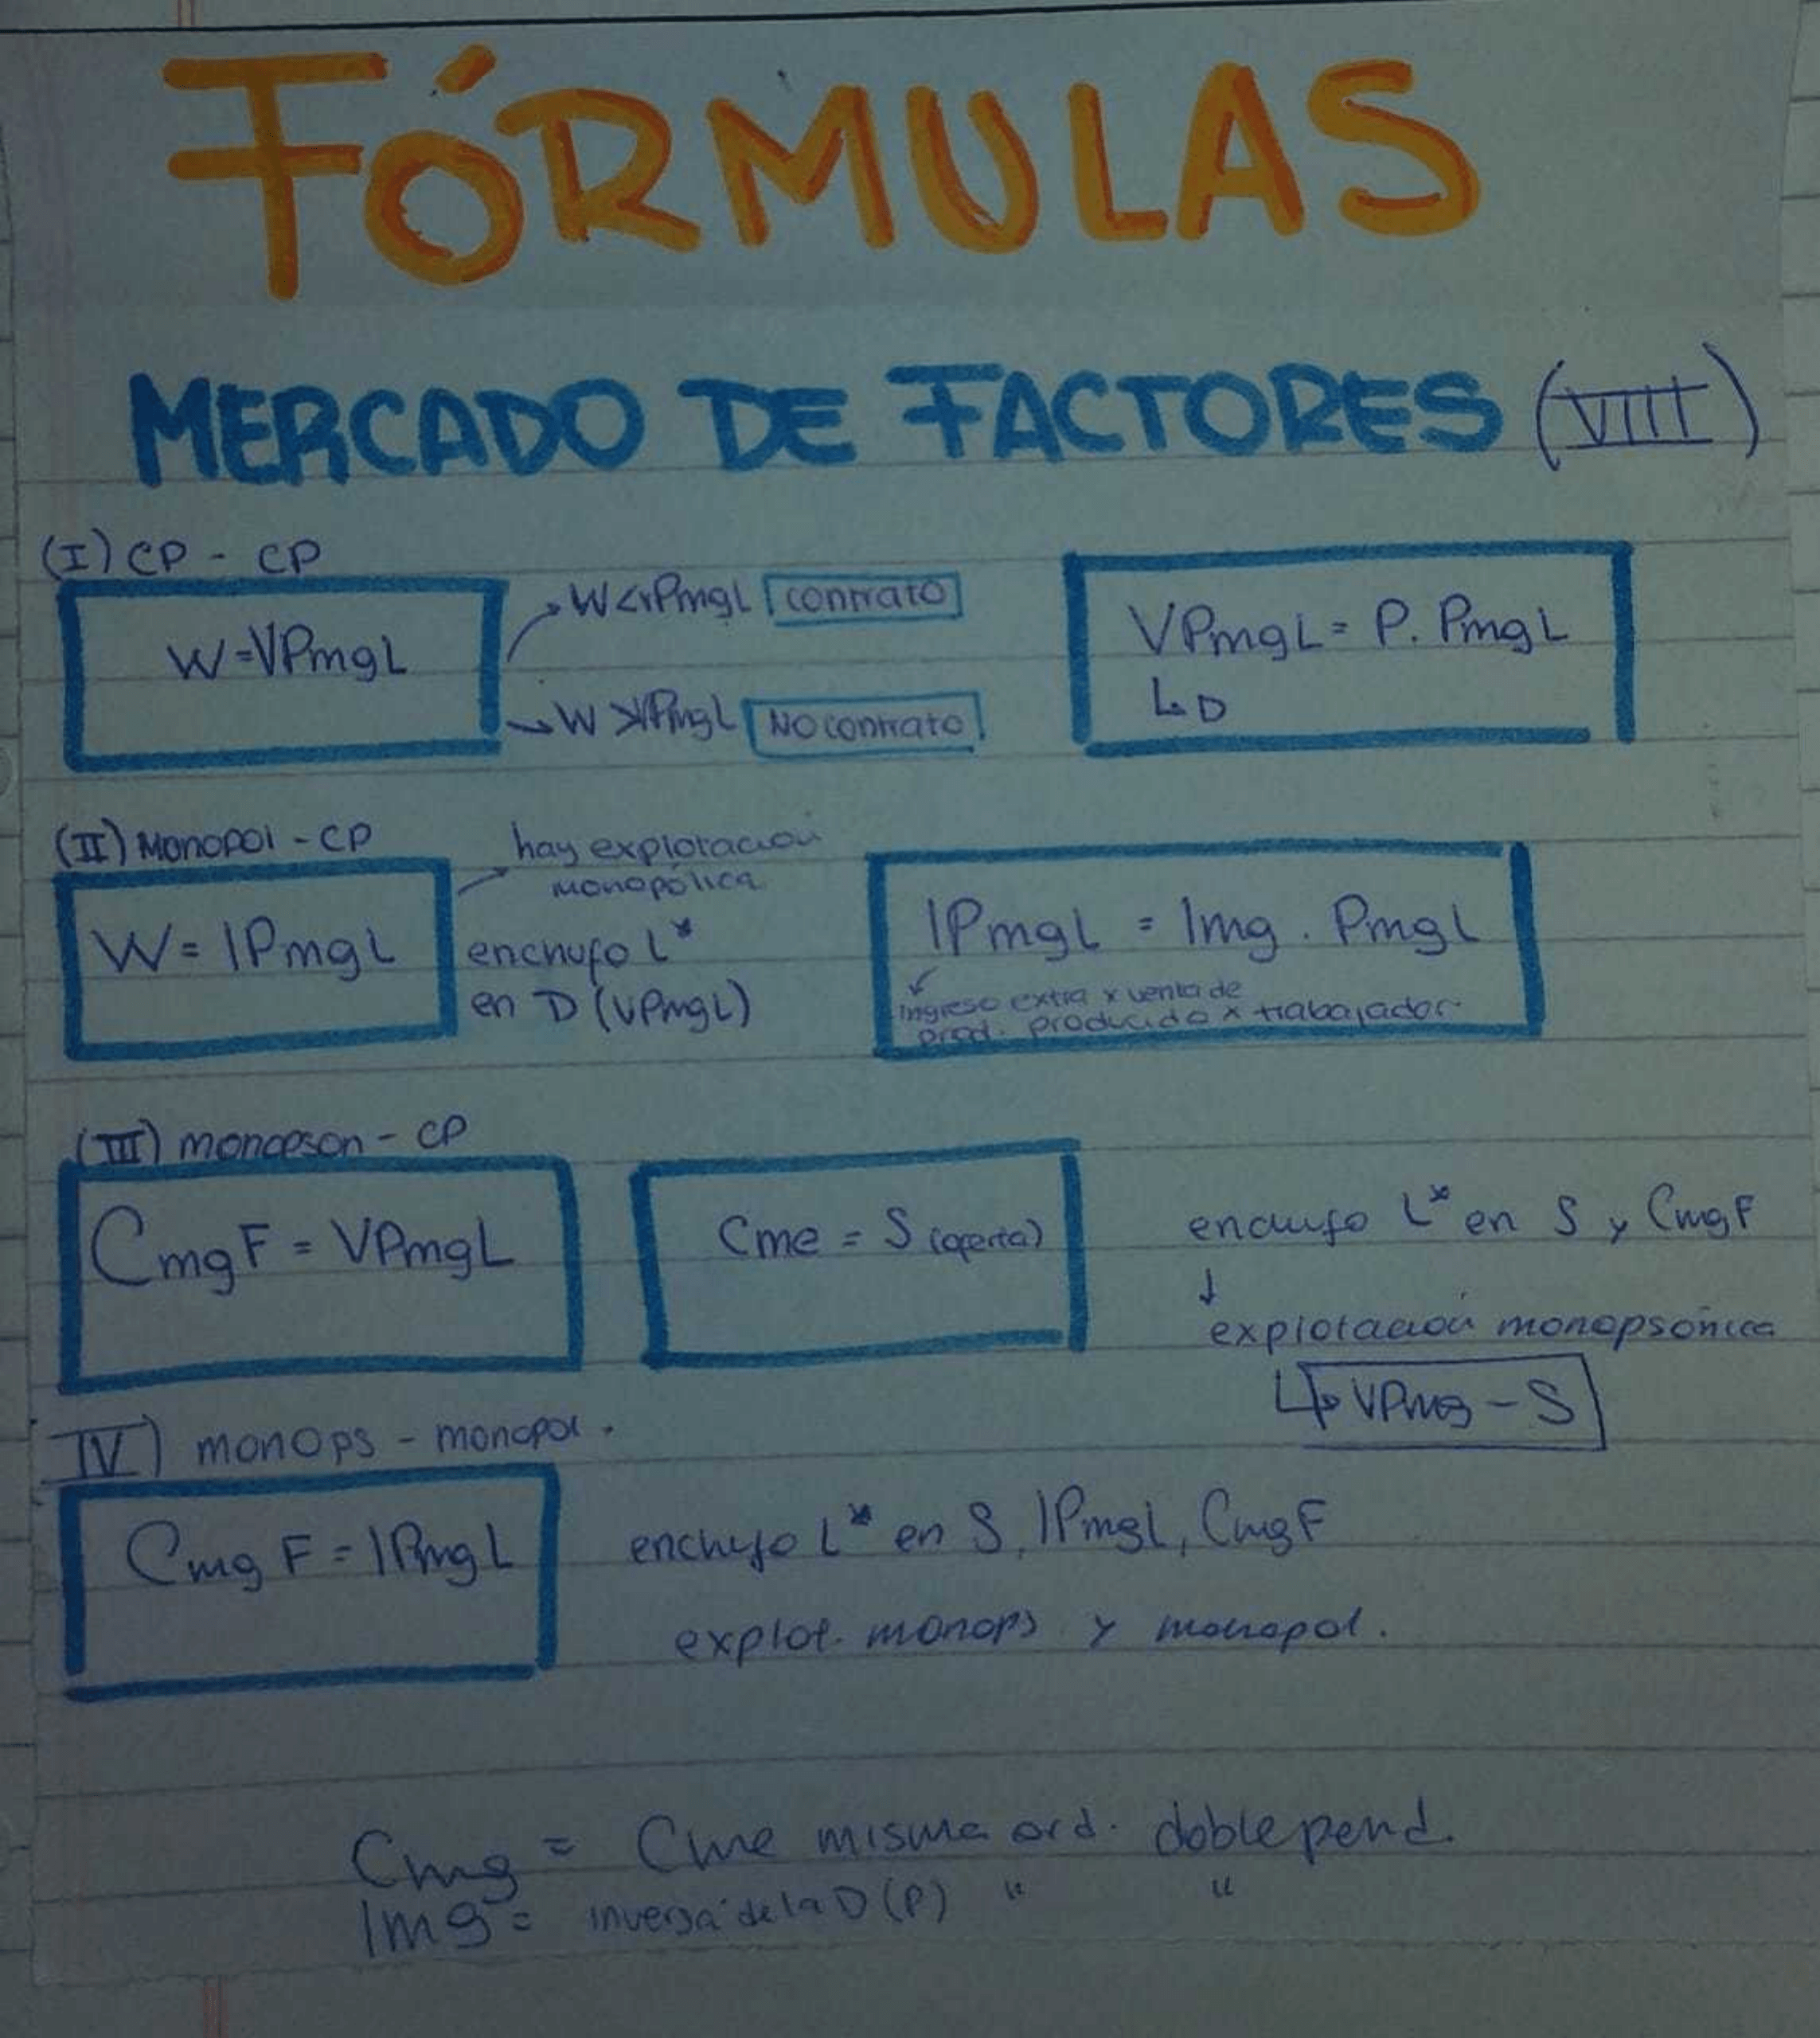 FÓRMULAS
MERCADO DE FACTORES (VIII)
(I) CP - CP
W = VPmgL
W < VPmgL contrato
W > VPmgL NO contrato
VPmgL = P. PmgL
↳ D
(II) Monopol - CP
W = IPmgL
hay explotación
monopólica
enchufo L*
en D (VPmgL)
IPmgL = Img . PmgL
ingreso extra x venta de
prod. producido x trabajador
(III) monopson - CP
CmgF = VPmgL
Cme = S (oferta)
enchufo L* en S y CmgF
↓
explotación monopsónica
↳ VPmg - S
IV) monops - monopol.
Cmg F = IPmgL
enchufo L* en S, IPmgL, CmgF
explot. monops y monopol.
Cmg = Cme misma ord. doble pend.
Img = inversa de la D (P) " "